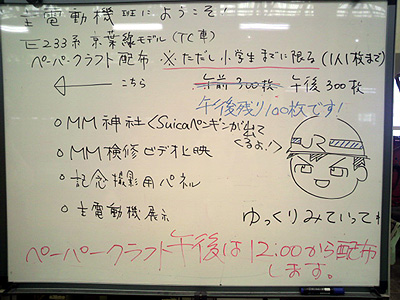 主電動機班にようこそ!
E233系 京葉線モデル (TC車)
ペーパークラフト配布 ※ただし小学生までに限る(1人1枚まで)
こちら 午前300枚 午後300枚
午後残り100枚です!
○MM神社 <Suicaペンギンが出てくるよ!>
○MM検修ビデオ上映
JR
○記念撮影用パネル
○主電動機展示
ゆっくりみていって
ペーパークラフト午後は12:00から配布
します。